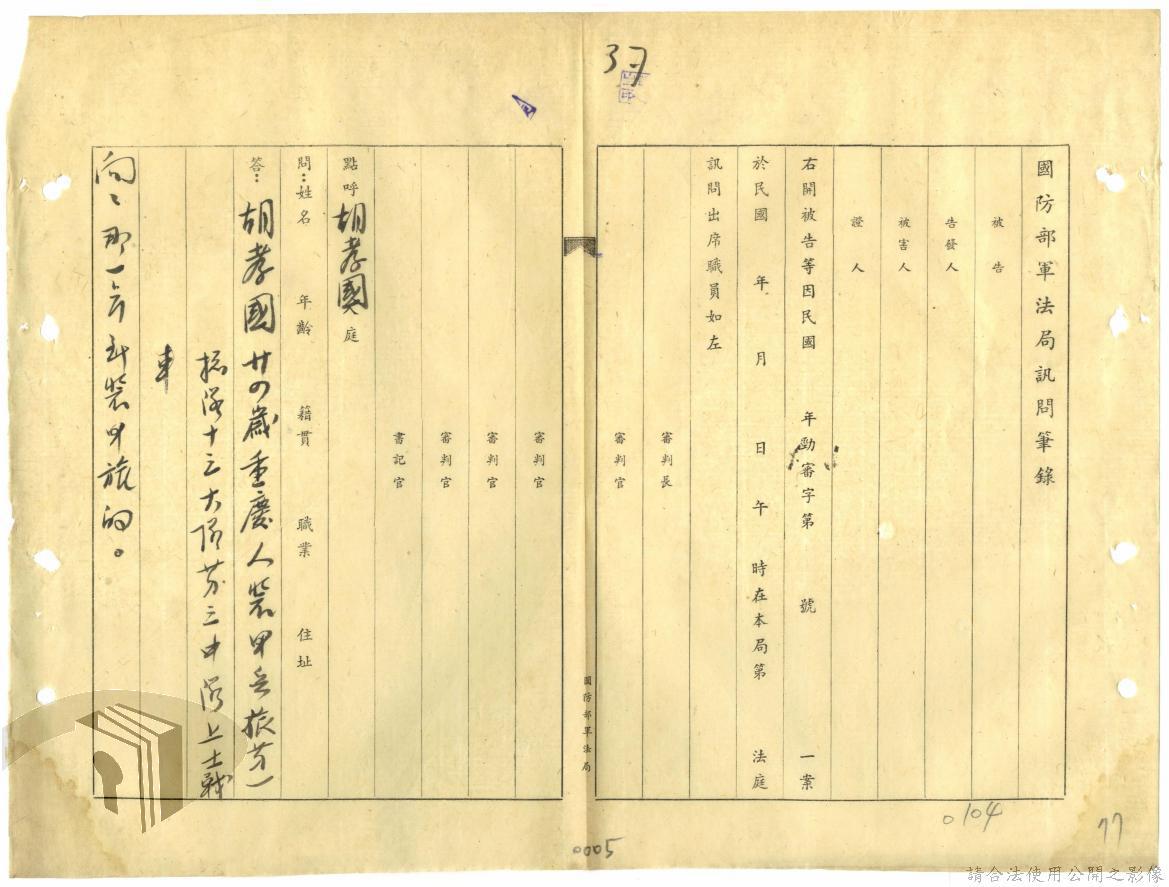 37
國防部軍法局訊問筆錄
被告
告發人
被害人
證人
右開被告等因民國 年勁審字第 號 一案
於民國 年 月 日 午 時在本局第 法庭
訊問出席職員如左
審判長
審判官
國防部軍法局
審判官
審判官
審判官
書記官
點呼胡孝國庭
問:姓名 年齡 籍貫 職業 住址
答:胡孝國 廿四歲重慶人裝甲兵旅第一
總隊十三大隊第三中隊上士戰
車
問:那一年到裝甲旅的。
0005
0104
77
請合法使用公開之影像